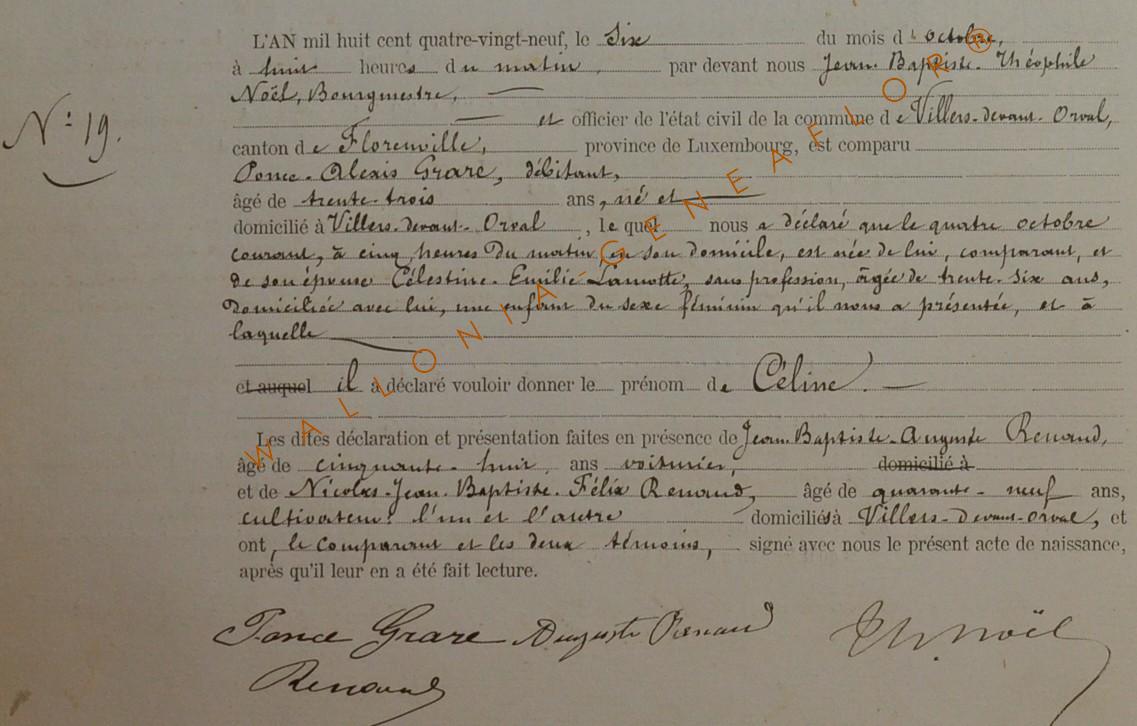 L'AN mil huit cent quatre-vingt-neuf, le Six du mois d'octobre,
à huit heures du matin, par devant nous Jean-Baptiste-Théophile
Noël, Bourgmestre,
N° 19.
et officier de l'état civil de la commune de Villers-devant-Orval,
canton de Florenville, province de Luxembourg, est comparu
Ponce-Alexis Grare, débitant,
âgé de trente-trois ans, né et
domicilié à Villers-devant-Orval, lequel nous a déclaré que le quatre octobre
courant, à cinq heures du matin, en son domicile, est née de lui, comparant, et
de son épouse Célestine-Emilie Lamotte, sans profession, âgée de trente-six ans,
domiciliée avec lui, une enfant du sexe féminin qu'il nous a présentée, et à
laquelle
et auquel il a déclaré vouloir donner le prénom de Céline.
Les dites déclaration et présentation faites en présence de Jean-Baptiste-Auguste Renaud,
âgé de cinquante-huit ans voiturier, domicilié à
et de Nicolas-Jean-Baptiste-Félix Renaud, âgé de quarante-neuf ans,
cultivateur, l'un et l'autre domiciliés à Villers-devant-Orval, et
ont, le comparant et les deux témoins, signé avec nous le présent acte de naissance,
après qu'il leur en a été fait lecture.
Ponce Grare Auguste Renaud Th. Noël
Renaud
WALLONIA-GENEAFLOR®